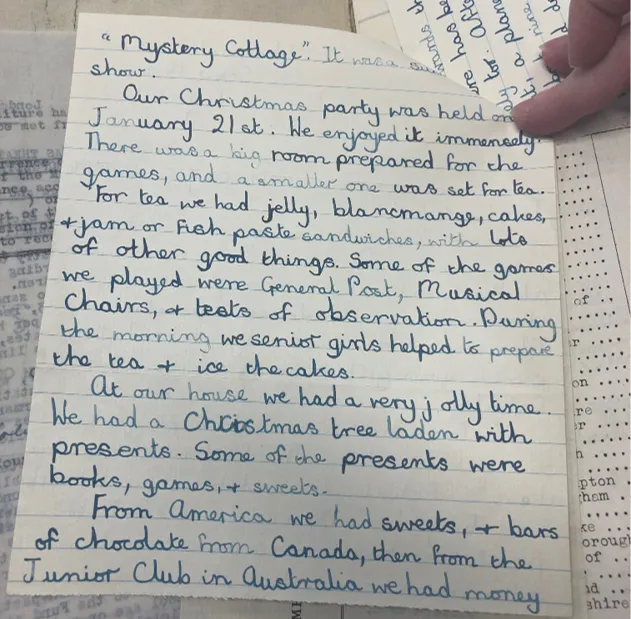 "Mystery Cottage". It was a
show.
Our Christmas party was held on
January 21st. We enjoyed it immensely.
There was a big room prepared for the
games, and a smaller one was set for tea.
For tea we had jelly, blancmange, cakes,
+ jam or fish paste sandwiches, with lots
of other good things. Some of the games
we played were General Post, Musical
Chairs, + tests of observation. During
the morning we senior girls helped to prepare
the tea + ice the cakes.
At our house we had a very jolly time.
We had a Christmas tree laden with
presents. Some of the presents were
books, games, + sweets.
From America we had sweets, + bars
of chocolate from Canada, then from the
Junior Club in Australia we had money
of
r
on
re
r
h
pton
ham
ke
oroug
of
nd
shire